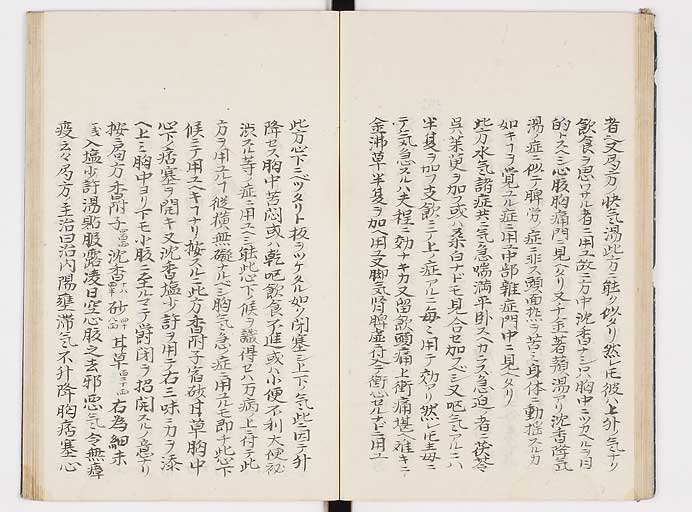 者ニ又局方ノ快気湯此方ニ能ク似タリ然レ𪜈彼ハ上升ノ気ナリ
飲食ヲ思ワサル者ニ用ユ故ニ方中沈香ナシ只胸中ニツカヘルヲ目
的トスヘシ心腹胸痛門ニ見ヘタリ又
湯ノ症ニ似テ脾労ノ症ニ非ス頭面熱ヲ苦シミ身体ニ動揺スルカ
如キヿヲ覚ユル症ニ用ユ中部雑症門中ニ見ヘタリ
此方水気諸症共ニ気急喘満平臥スヘカラス急迫ノ者ニ茯苓
呉茱萸ヲ加フ或ハ桑白ナドモ見合セ加フヘシ又嘔気アルニハ
半夏ヲ加フ支飲ニテ上ノ症アルニ毎々用テ効アリ然レ𪜈
テ只気急スルハ夫程ニ効ナキカ又留飲頭痛上衝痛堪ヘ難キニ
金沸草半夏ヲ加ヘ用ユ又脚気腎脾虚付テ衝心セルナドニ用ユ
此方心下ニベッタリト板ヲツケタル如ク閉塞シ上下ノ気此ニ因テ升
降セス胸中苦悶或ハ乾嘔飲食不進或ハ小便不利大便秘
渋スル等ノ症ニ用ユヘシ能此心下ノ候ヲ識得セハ万病上付テ此
方ヲ用ユルヿ縦横無礙ナルベシ胸気急ノ症ニ用ユルモ即チ此心下
候ニテ用ユヘキヿナリ按スルニ此方香附子宿砂甘草胸中
心下痞塞ヲ開キ又沈香塩少許ヲ用テ右三味ニ力ヲ添
ヘ上ミ胸中ヨリ下モ小腹ニ至ルマテ欝閉ヲ招開スルノ意ナリ
按局方香附子 沈香 砂 甘草 右為細末
入塩少許湯點服露凌旦空心服之去邪悪気令無瘴
疫云々局方主治曰治内陽壅滞気不升降胸痞塞心